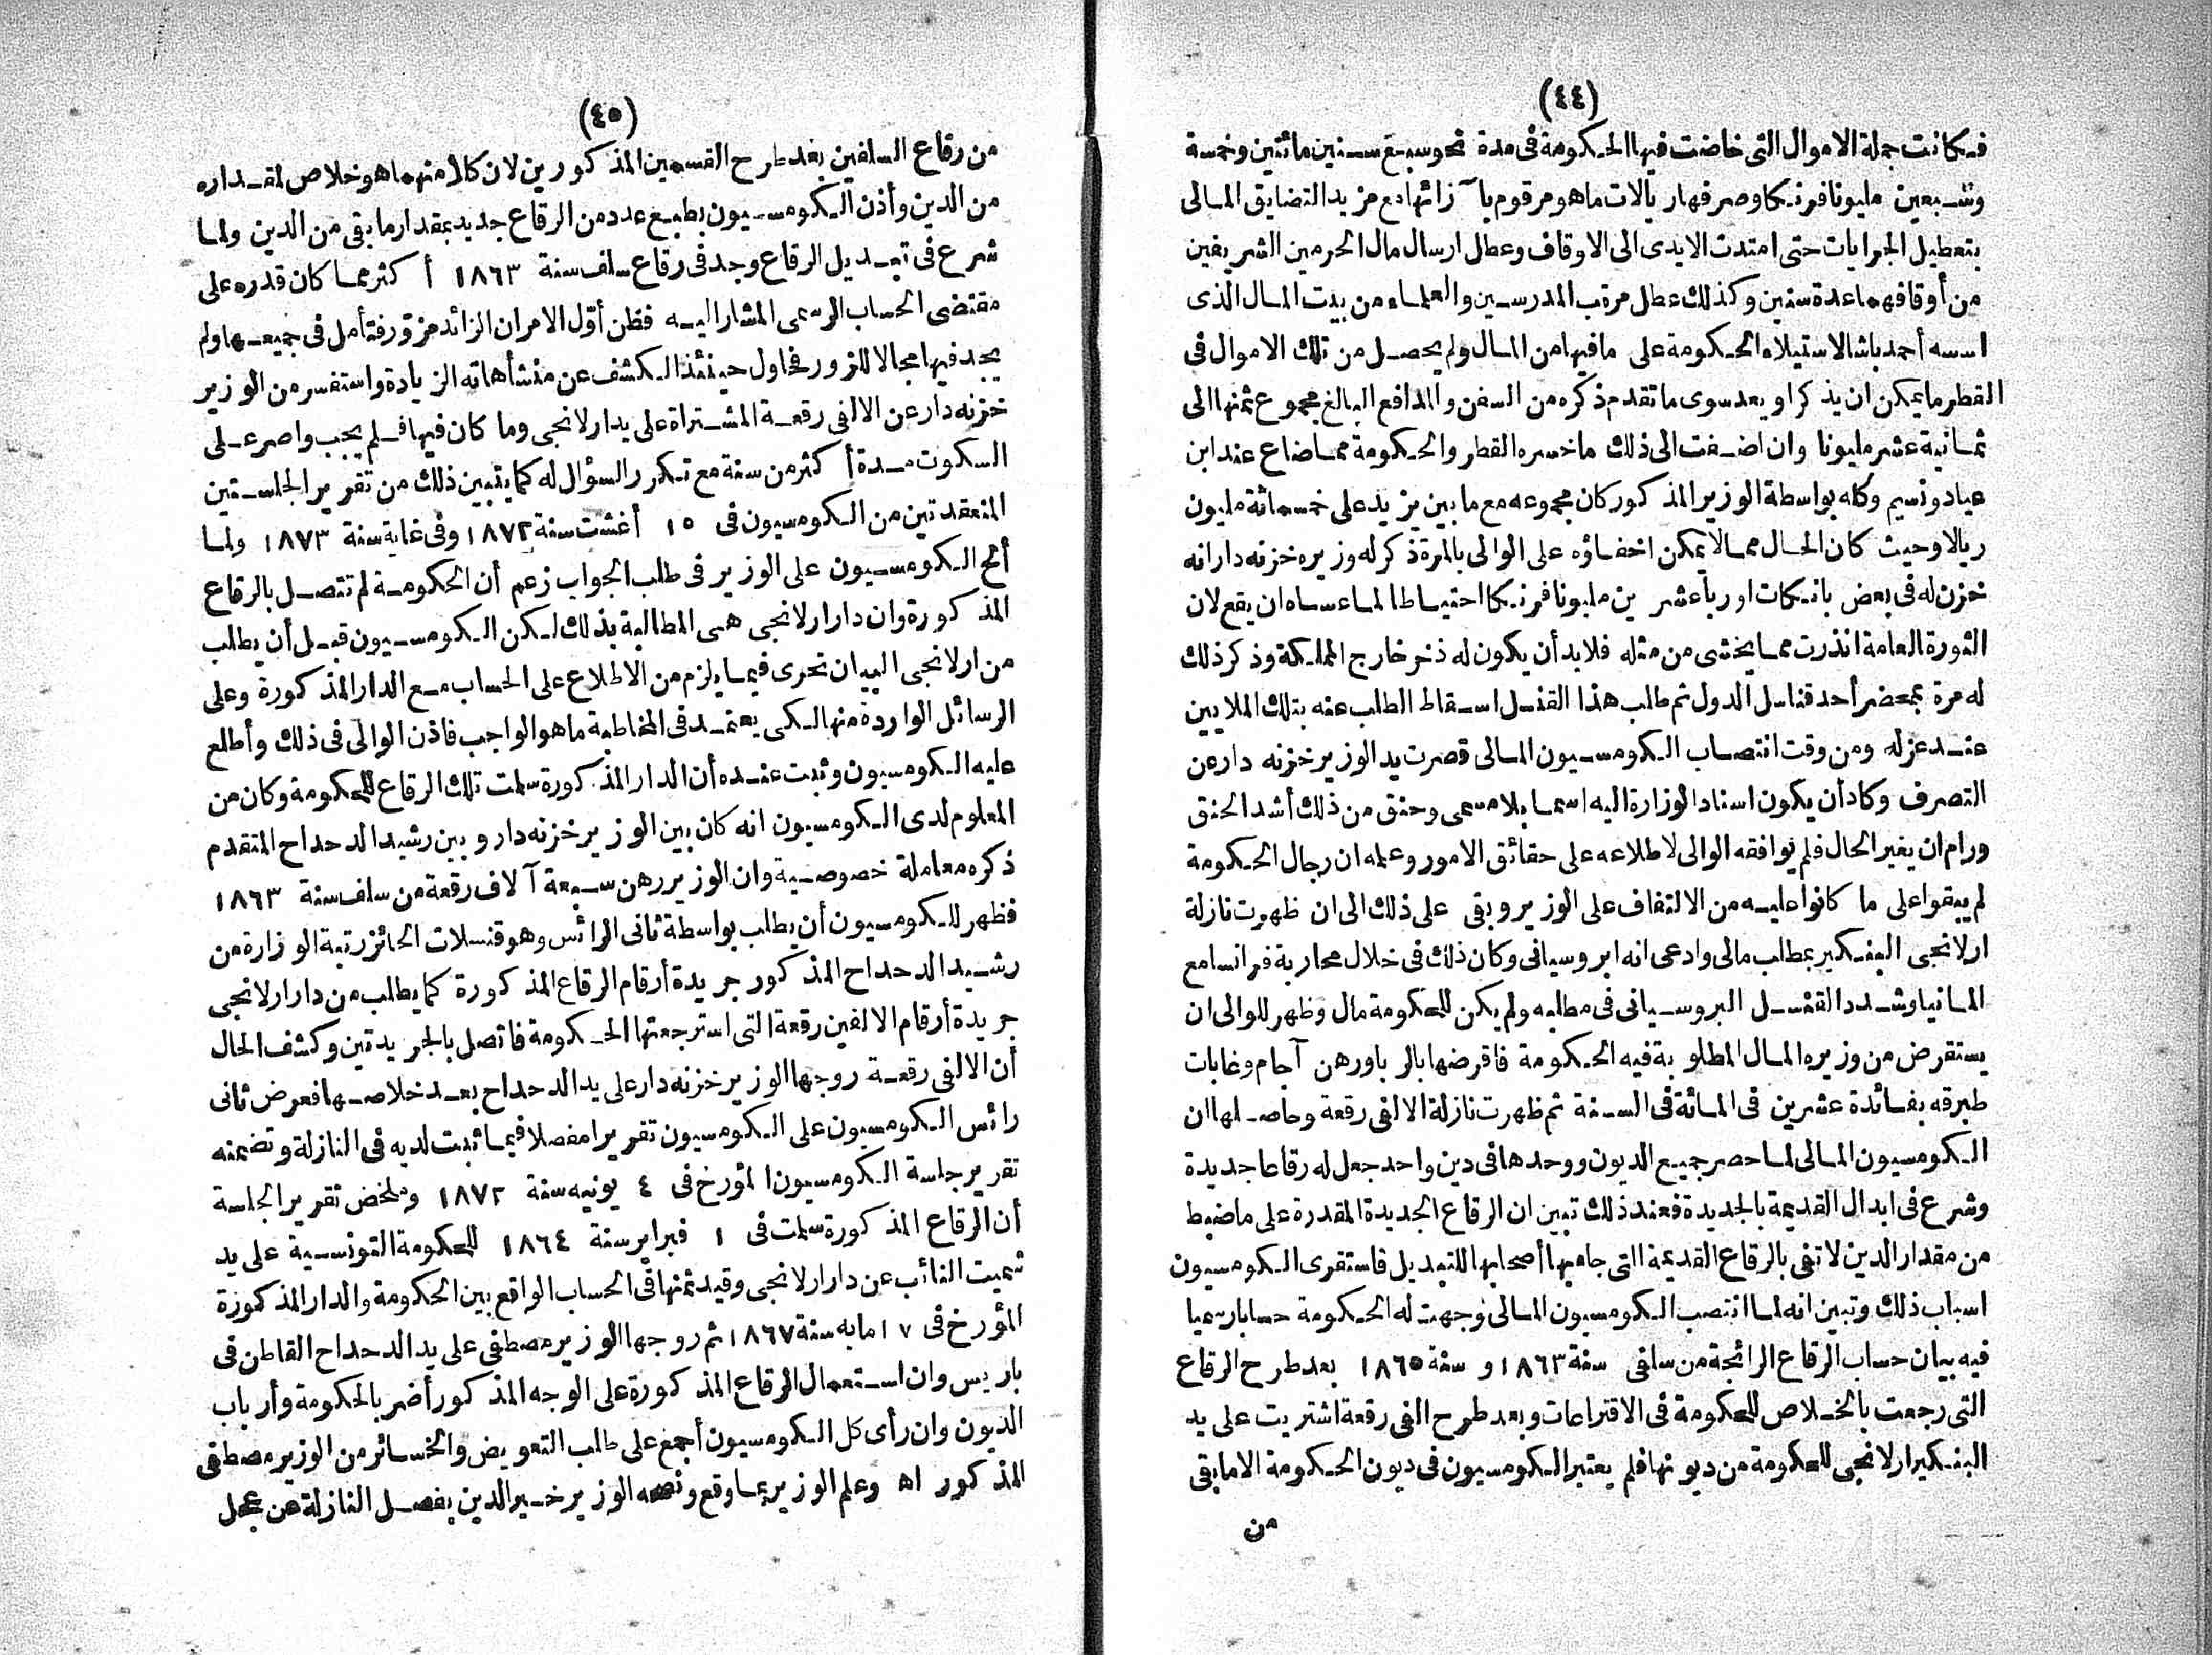 (٤٤)
فكانت جملة الاموال التى خاضت فيها الحكومة فى مدة نحو سبع سنين مائتين وخمسة
وسبعين مليونا فرنكا وصرفها ريالات ما هو مرقوم بآزائها دع مزيد التضايق المالى
بتعطيل الجرايات حتى امتدت الايدى الى الاوقاف وعطل ارسال مال الحرمين الشريفين
من أوقافهما عدة سنين وكذلك عطل مرتب المدرسين والعلماء من بيت المال الذى
اسسه أحمد باشا لاستيلاء الحكومة على ما فيها من المال ولم يحصل من تلك الاموال فى
القطر ما يمكن ان يذكر او يعد سوى ما تقدم ذكره من السفن والمدافع البالغ مجموع ثمنها الى
ثمانية عشر مليونا وان اضفت الى ذلك ما خسره القطر والحكومة مما ضاع عند ابن
عياد ونسيم وكله بواسطة الوزير المذكور كان مجموعه مع ما بين يزيد على خمسمائة مليون
ريالا وحيث كان الحال مما لا يمكن اخفاؤه على الوالى بالمرة ذكر له وزيره خزنه دار انه
خزن له فى بعض بانكات اوربا عشرين مليونا فرنكا احتياطا لما عساه ان يقع لان
الثورة العامة انذرت مما يخشى من مثله فلا بد أن يكون له ذخر خارج المملكة وذكر ذلك
له مرة بمحضر أحد قناسل الدول ثم طلب هذا القنسل اسقاط الطلب عنه بتلك الملايين
عند عزله ومن وقت انتصاب الكومسيون المالى قصرت يد الوزير خزنه دار عن
التصرف وكاد أن يكون اسناد الوزارة اليه اسما بلا مسمى وحنق من ذلك أشد الحنق
ورام ان يغير الحال فلم يوافقه الوالى لاطلاعه على حقائق الامور وعلمه ان رجال الحكومة
لم يبقوا على ما كانوا عليه من الالتفاف على الوزير وبقى على ذلك الى ان ظهرت نازلة
ارلانجى البنكير بمطلب مالى وادعى انه ابروسيانى وكان ذلك فى خلال محاربة فرانسا مع
المانيا وشدد القنسل البروسيانى فى مطلبه ولم يكن للحكومة مال وظهر للوالى ان
يستقرض من وزيره المال المطلوبة فيه الحكومة فاقرضها بالربا ورهن آجام وغابات
طبرقه بفائدة عشرين فى المائة فى السنة ثم ظهرت نازلة الالفى رقعة وحاصلها ان
الكومسيون المالى لما حصر جميع الديون ووحدها فى دين واحد جعل له رقاعا جديدة
وشرع فى ابدال القديمة بالجديدة فعند ذلك تبين ان الرقاع الجديدة المقدرة على ما ضبط
من مقدار الدين لا تفى بالرقاع القديمة التى جاء بها أصحابها للتبديل فاستقرى الكومسيون
اسباب ذلك وتبين انه لما انتصب الكومسيون المالى وجهت له الحكومة حسابا رسميا
فيه بيان حساب الرقاع الرائجة من سلفى سنة ١٨٦٣ و سنة ١٨٦٥ بعد طرح الرقاع
التى رجعت بالخلاص للحكومة فى الاقتراعات وبعد طرح الفى رقعة اشتريت على يد
البنكير ارلانجى للحكومة من ديونها فلم يعتبر الكومسيون فى ديون الحكومة الا ما بقى
من
(٤٥)
من رقاع السلفين بعد طرح القسمين المذكورين لان كلا منهما هو خلاص لمقداره
من الدين وأذن الكومسيون بطبع عدد من الرقاع جديد بمقدار ما بقى من الدين ولما
شرع فى تبديل الرقاع وجد فى رقاع سلف سنة ١٨٦٣ أكثر مما كان قدره على
مقتضى الحساب الرسمى المشار اليه فظن أوّل الامر ان الزائد مزور فتأمل فى جميعها ولم
يجد فيها مجالا للزور فحاول حينئذ الكشف عن منشأ هاته الزيادة واستفسر من الوزير
خزنه دار عن الالفى رقعة المشتراة على يد ارلانجى وما كان فيها فلم يجب واصر على
السكوت مدة أكثر من سنة مع تكرر السؤال له كما يتبين ذلك من تقرير الجلستين
المنعقدتين من الكومسيون فى ١٥ أغشت سنة ١٨٧٢ وفى غاية سنة ١٨٧٣ ولما
ألح الكومسيون على الوزير فى طلب الجواب زعم أن الحكومة لم تتصل بالرقاع
المذكورة وان دار ارلانجى هى المطالبة بذلك لكن الكومسيون قبل أن يطلب
من ارلانجى البيان تحرى فيما يلزم من الاطلاع على الحساب مع الدار المذكورة وعلى
الرسائل الواردة منها لكى يعتمد فى المخاطبة ما هو الواجب فاذن الوالى فى ذلك وأطلع
عليه الكومسيون وثبت عنده أن الدار المذكورة سلمت تلك الرقاع للحكومة وكان من
المعلوم لدى الكومسيون انه كان بين الوزير خزنه دار وبين رشيد الدحداح المتقدم
ذكره معاملة خصوصية وان الوزير رهن سبعة آلاف رقعة من سلف سنة ١٨٦٣
فظهر للكومسيون أن يطلب بواسطة ثانى الرائس وهو قنسلات الحائز رتبة الوزارة من
رشيد الدحداح المذكور جريدة أرقام الرقاع المذكورة كما يطلب من دار ارلانجى
جريدة أرقام الالفين رقعة التى استرجعتها الحكومة فاتصل بالجريدتين وكشف الحال
أن الالفى رقعة روجها الوزير خزنه دار على يد الدحداح بعد خلاصها فعرض ثانى
رائس الكومسيون على الكومسيون تقريرا مفصلا فيما ثبت لديه فى النازلة وتضمنه
تقرير جلسة الكومسيون المؤرخ فى ٤ يونيه سنة ١٨٧٢ وملخص تقرير الجلسة
أن الرقاع المذكورة سلمت فى ١ فبراير سنة ١٨٦٤ للحكومة التونسية على يد
شميت النائب عن دار ارلانجى وقيد ثمنها فى الحساب الواقع بين الحكومة والدار المذكورة
المؤرخ فى ١٧ مايه سنة ١٨٦٧ ثم روجها الوزير مصطفى على يد الدحداح القاطن فى
باريس وان استعمال الرقاع المذكورة على الوجه المذكور أضر بالحكومة وأرباب
الديون وان رأى كل الكومسيون أجمع على طلب التعويض والخسائر من الوزير مصطفى
المذكور اه وعلم الوزير بما وقع ونصحه الوزير خير الدين بفصل النازلة عن عجل